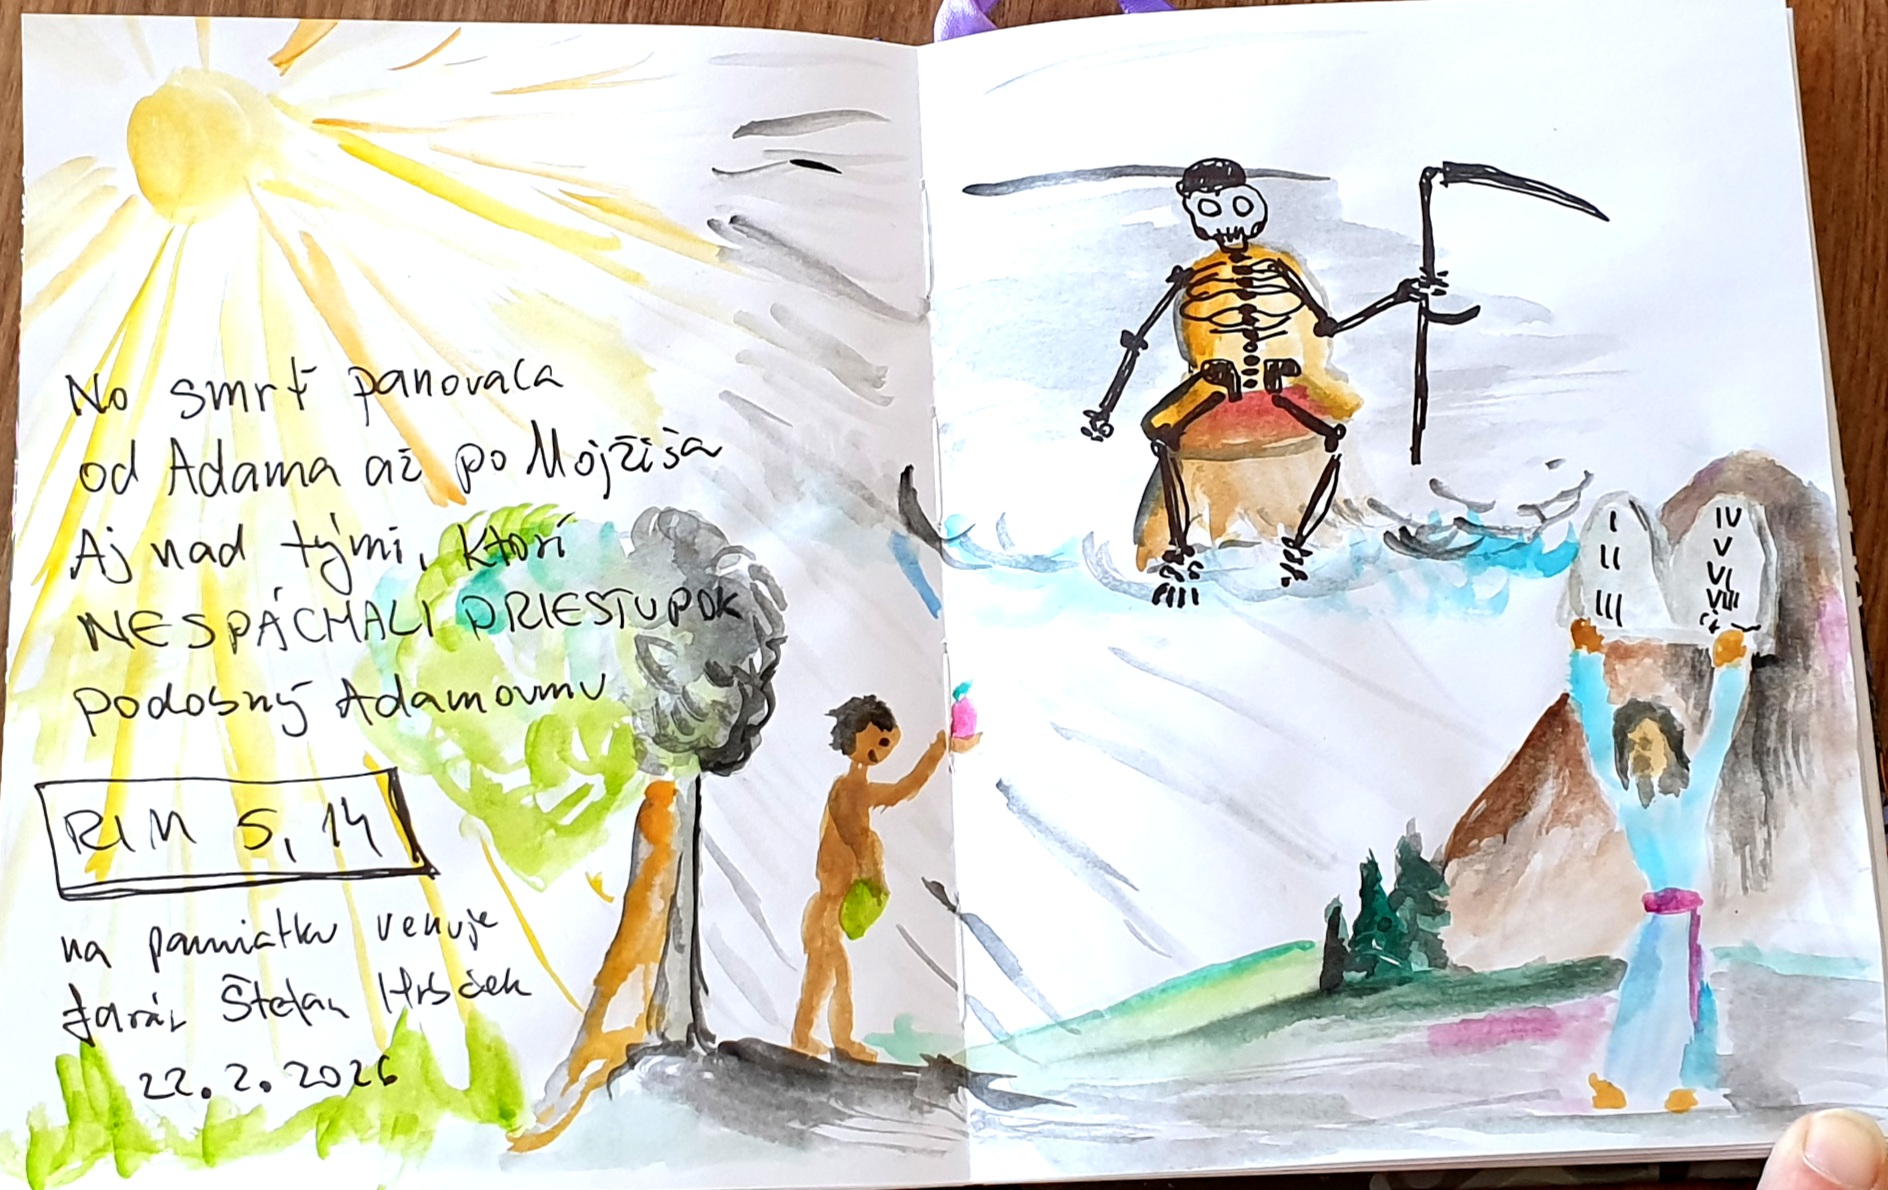 No smrť panovala
od Adama až po Mojžiša
Aj nad tými, ktorí
NESPÁCHALI PRIESTUPOK
podobný Adamovmu
RIM 5, 14
na pamiatku venuje
farár Štefan Hrbček
22. 2. 2026
I
II
III
IV
V
VI
VIII